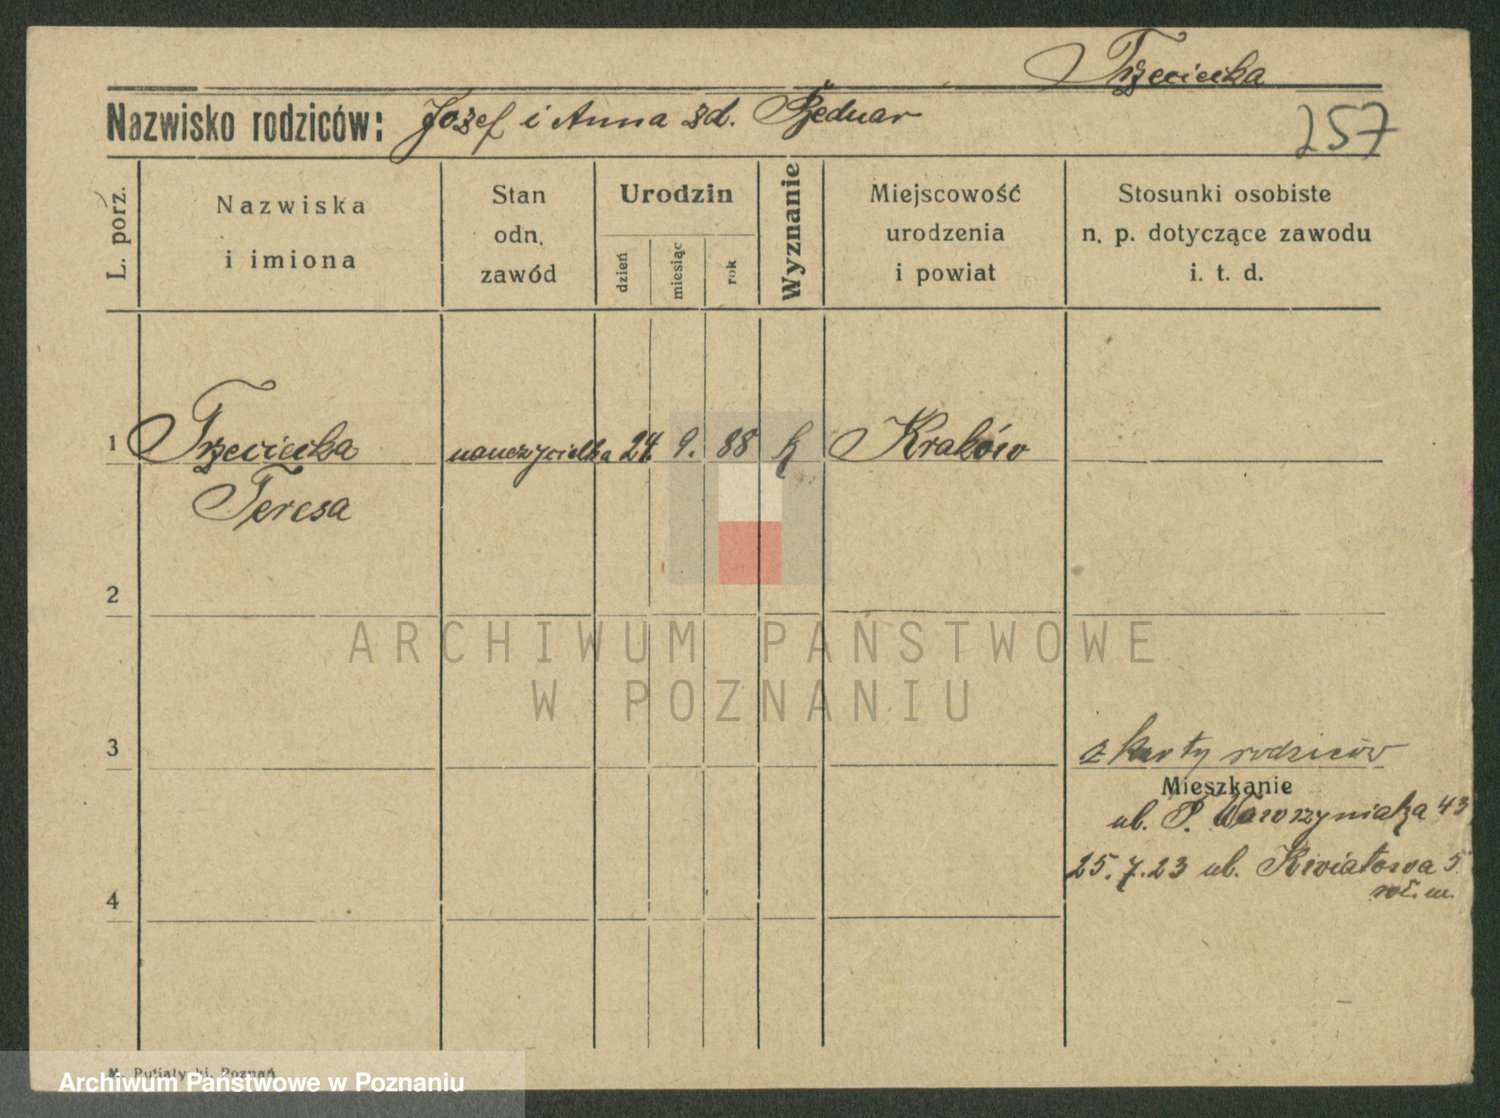 Trzeciecka
Nazwisko rodziców: Jozef i Anna zd.
257
L. porz.
Nazwiska
i imiona
Stan
odn.
zawód
Urodzin
dzień
miesiąc
rok
Wyznanie
Miejscowość
urodzenia
i powiat
Stosunki osobiste
n. p. dotyczące zawodu
i. t. d.
1 Trzeciecka nauczycielka 24. 9. 88 k Kraków
Teresa
2
ARCHIWUM PAŃSTWOWE
W POZNANIU
3
z karty rodziców
Mieszkanie
ul. P. Wawrzyniaka 43
25.7.23 ul. Kwiatowa 5.
4
Poznań
Archiwum Państwowe w Poznaniu